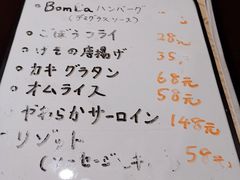 BomBaハンバーグ
(デミグラスソース)
ごぼうフライ 28元
げその唐揚げ 35元
カキグラタン 68元
オムライス 58元
やわらかサーロイン 148元
リゾット 58元